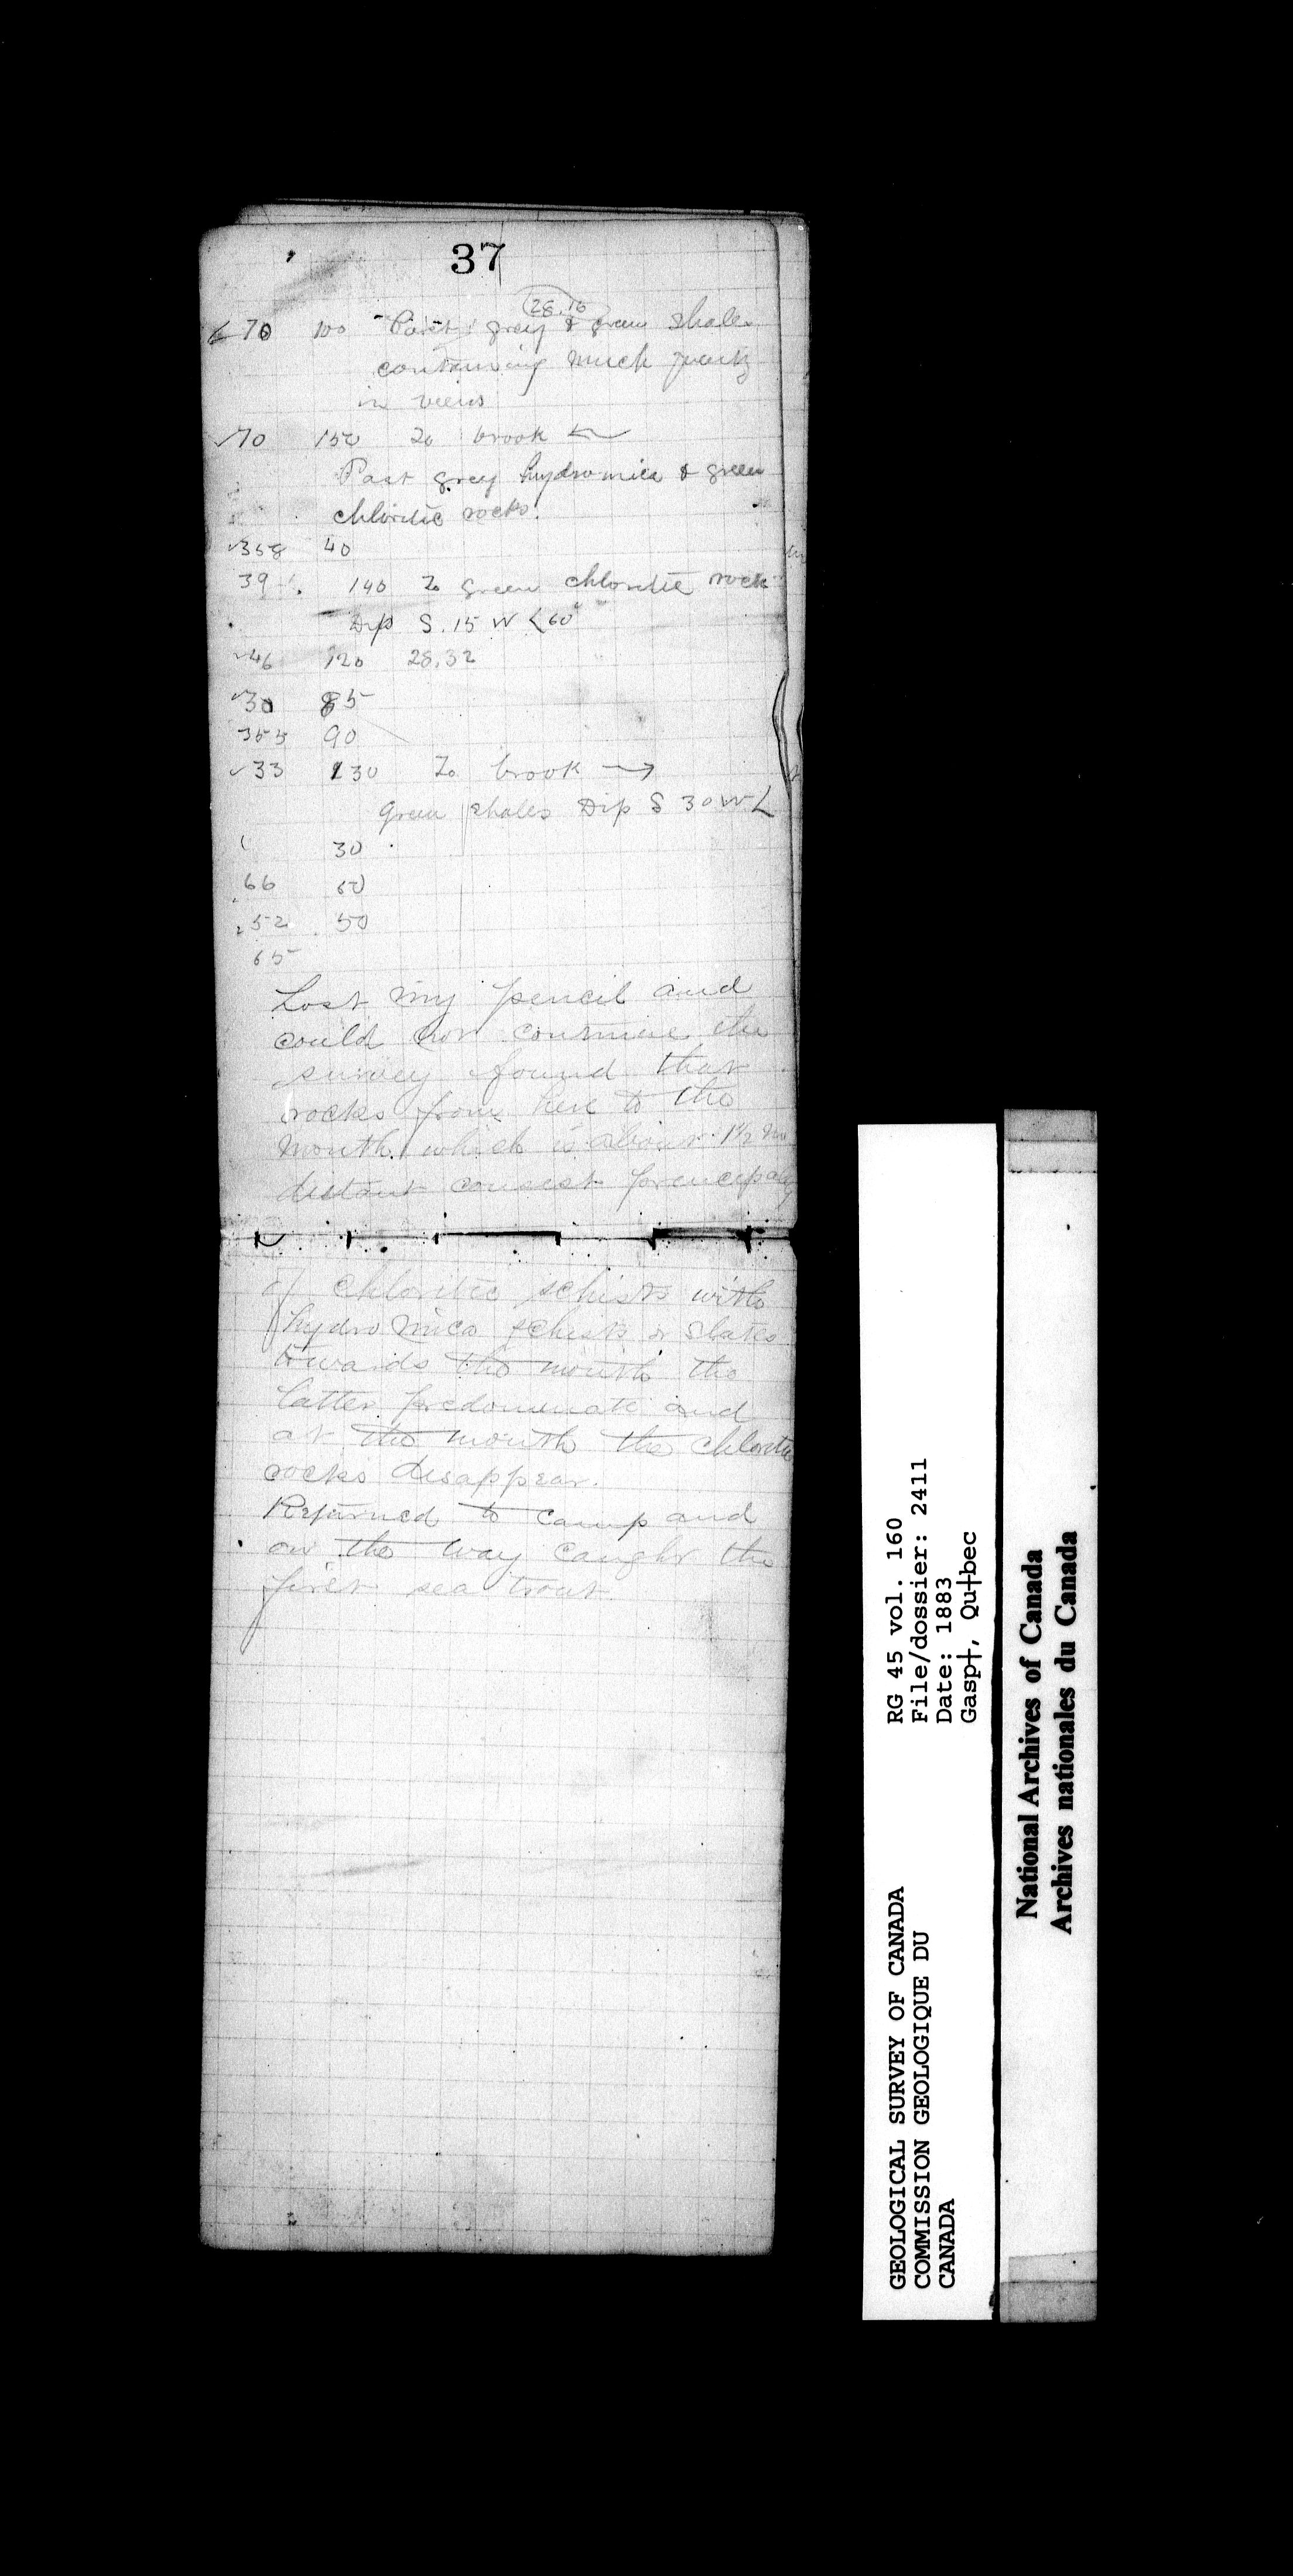 37
28.16
70 100 Past grey & green shales
containing much quartz
in viens
70 150 To brook ←
Past grey hydromica & green
chloritic rocks.
358 40
39 140 To green chloritic rock
Dip S. 15 W <60°
46 120 28.32
30 85
355 90
33 130 To brook →
Green shales Dip S 30 W <
30
66 60
52 50
65
Lost my pencil and
could not continue the
survey found that
rocks from here to the
mouth which is about 1½ m
distant consist principaly
of chloritic schists with
hydro mica schists or slates
towards the mouth the
latter predominate and
at the mouth the chloritic
rocks disappear.
Returned to camp and
on the way caught the
first sea trout
RG 45 vol. 160
File/dossier: 2411
Date: 1883
Gasp†, Qu†bec
GEOLOGICAL SURVEY OF CANADA
COMMISSION GEOLOGIQUE DU
CANADA
National Archives of Canada
Archives nationales du Canada